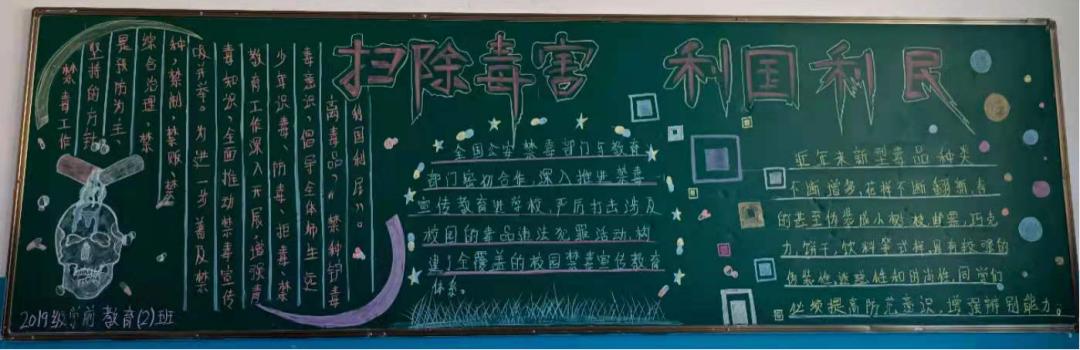 扫除毒害 利国利民
禁毒工作
坚持的方针
是预防为主、
综合治理，禁
种，禁制，禁贩，禁
吸并举。为进一步普及禁
毒知识，全面推动禁毒宣传
教育工作深入开展，增强青
少年识毒、防毒、拒毒、禁
毒意识，倡导全体师生远
离毒品，“禁种铲毒
利国利民”。
2019级学前教育(2)班
全国公安禁毒部门与教育
部门密切合作，深入推进禁毒
宣传教育进学校，严厉打击涉及
校园的毒品违法犯罪活动，构
建了全覆盖的校园禁毒宣传教育
体系。
近年来新型毒品种类
不断增多，花样不断翻新，有
的甚至伪装成小树枝，邮票，巧克
力，饼干，饮料等式样，具有较强的
伪装性，迷惑性和时尚性，同学们
必须提高防范意识，增强辨别能力。